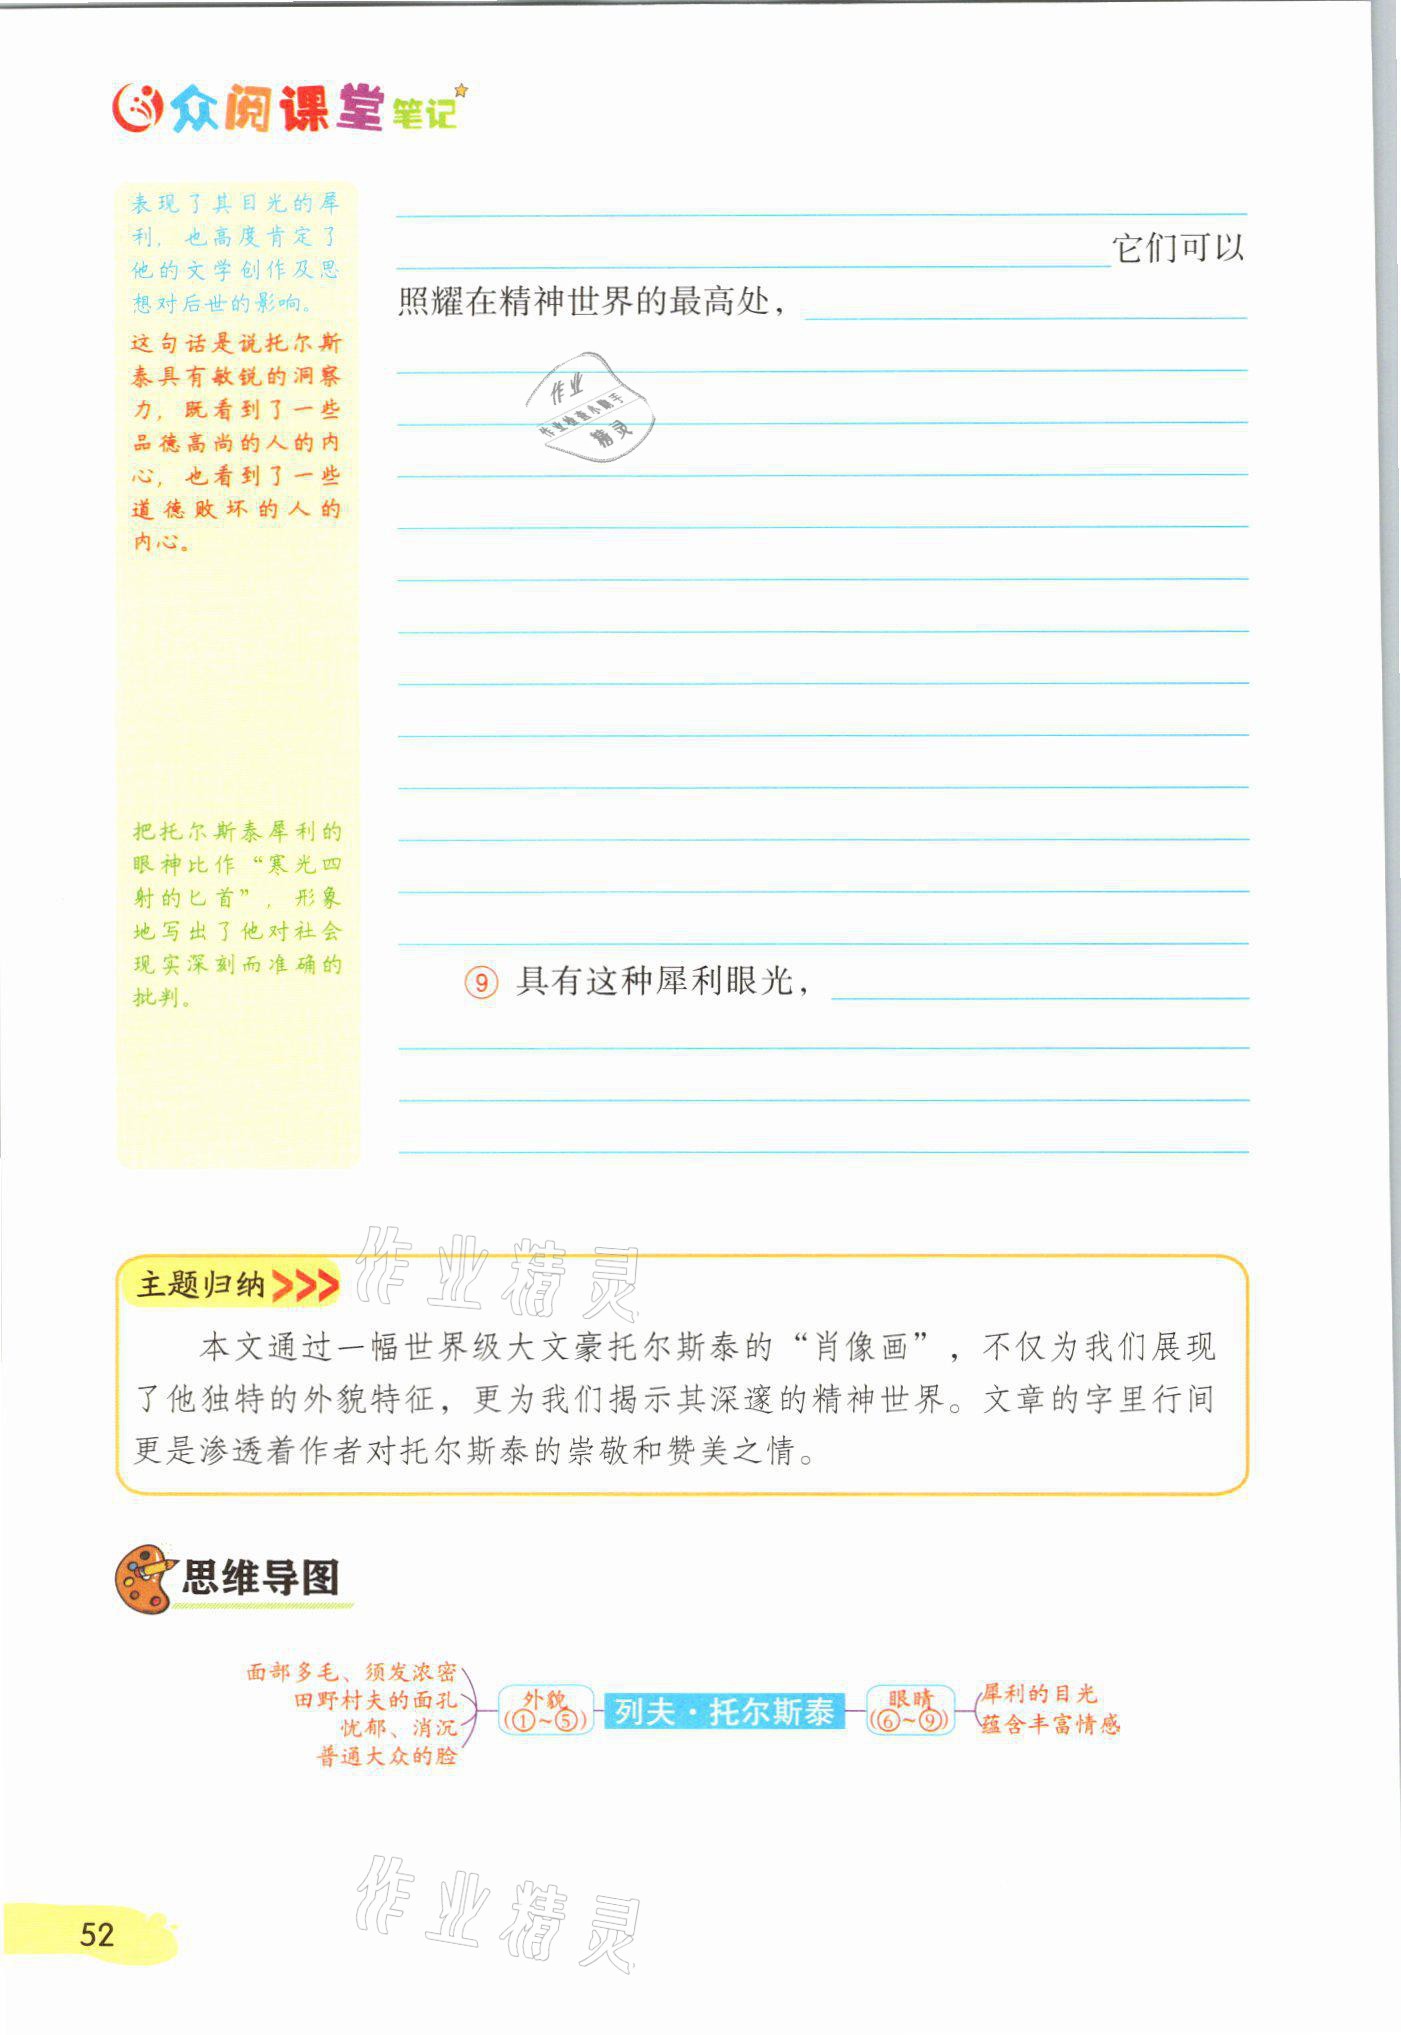 众阅课堂笔记
表现了其目光的犀
利，也高度肯定了
他的文学创作及思
想对后世的影响。
这句话是说托尔斯
泰具有敏锐的洞察
力，既看到了一些
品德高尚的人的内
心，也看到了一些
道德败坏的人的
内心。
把托尔斯泰犀利的
眼神比作“寒光四
射的匕首”，形象
地写出了他对社会
现实深刻而准确的
批判。
它们可以
照耀在精神世界的最高处，
作业
作业检查小助手
精灵
⑨ 具有这种犀利眼光，
作业精灵
主题归纳
本文通过一幅世界级大文豪托尔斯泰的“肖像画”，不仅为我们展现
了他独特的外貌特征，更为我们揭示其深邃的精神世界。文章的字里行间
更是渗透着作者对托尔斯泰的崇敬和赞美之情。
思维导图
面部多毛、须发浓密
田野村夫的面孔
忧郁、消沉
普通大众的脸
外貌
(①~⑤)
列夫·托尔斯泰
眼睛
(⑥~⑨)
犀利的目光
蕴含丰富情感
作业精灵
52